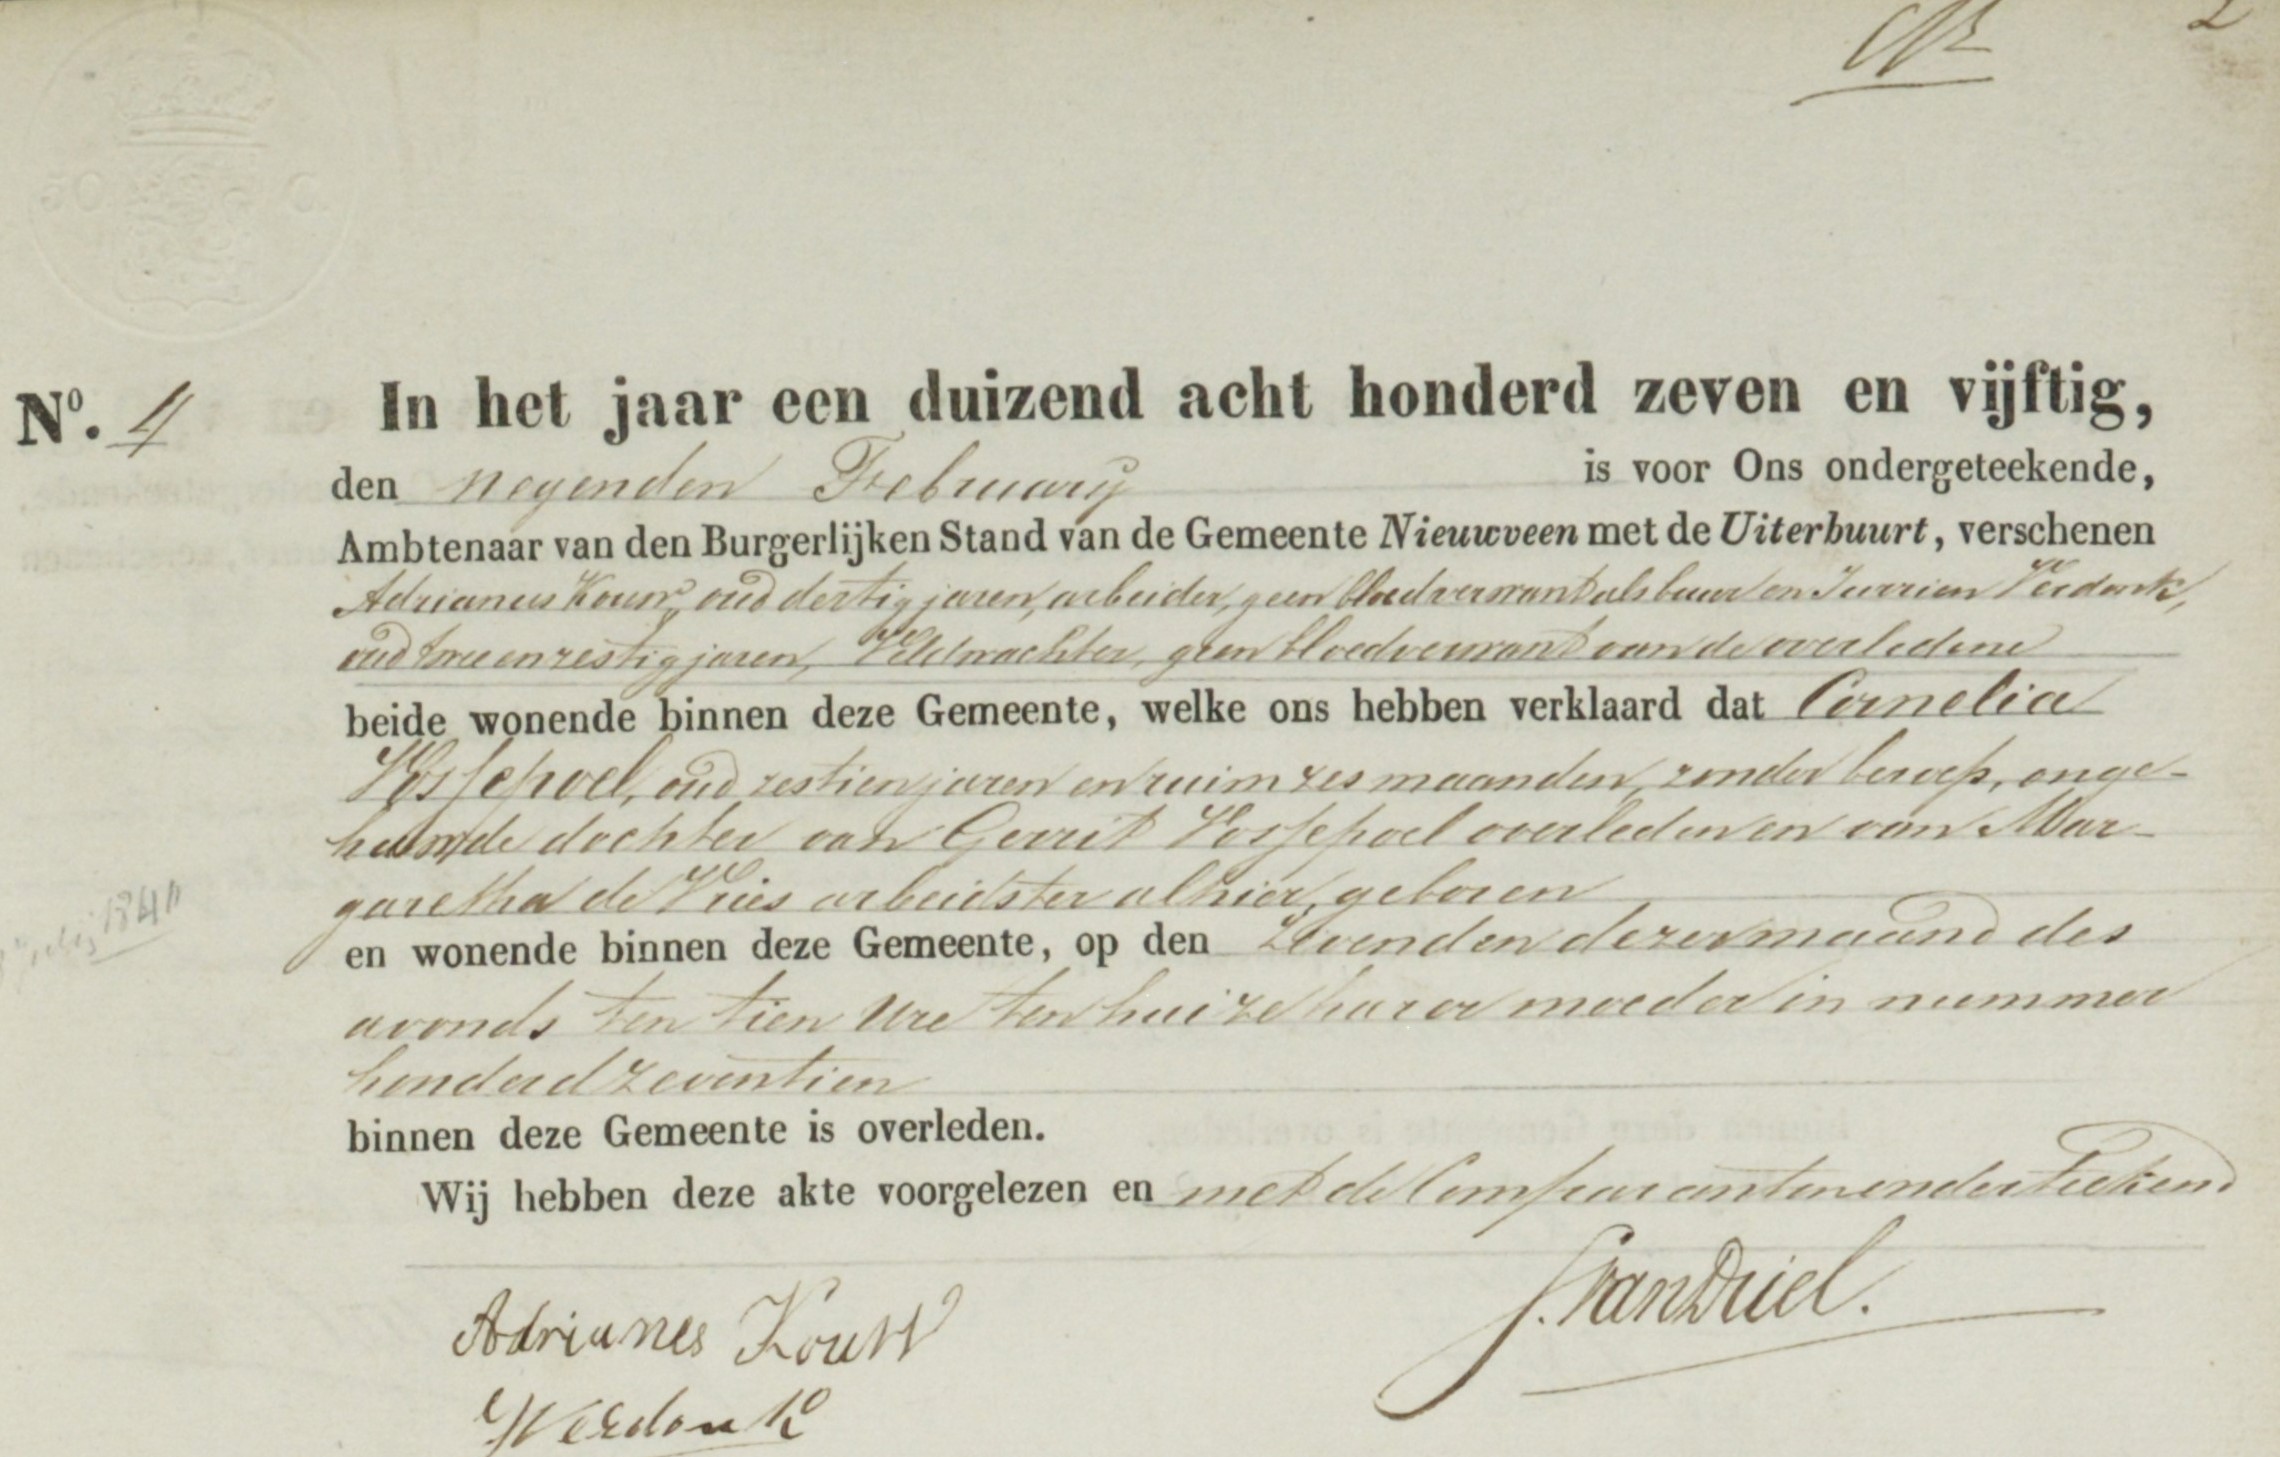 2
50 C.
Nº. 4 In het jaar een duizend acht honderd zeven en vijftig,
den negenden February is voor Ons ondergeteekende,
Ambtenaar van den Burgerlijken Stand van de Gemeente Nieuwveen met de Uiterbuurt, verschenen
Adrianus Kouw, oud dertig jaren, arbeider, geen bloedverwant als buur en Jurrian Verdonk,
oud twee en zestig jaren, Veldwachter, geen bloedverwant van de overledene
beide wonende binnen deze Gemeente, welke ons hebben verklaard dat Cornelia
Vossepoel, oud zestien jaren en ruim zes maanden, zonder beroep, onge-
huwde dochter van Gerrit Vossepoel overleden en van Mar-
garetha de Vries arbeidster alhier, geboren
1840
en wonende binnen deze Gemeente, op den zevenden dezer maand des
avonds ten tien ure ten huize harer moeder in nummer
honderd zeventien
binnen deze Gemeente is overleden.
Wij hebben deze akte voorgelezen en met de Comparanten onderteekend
J. van Driel.
Adrianes Kouw
Verdonk